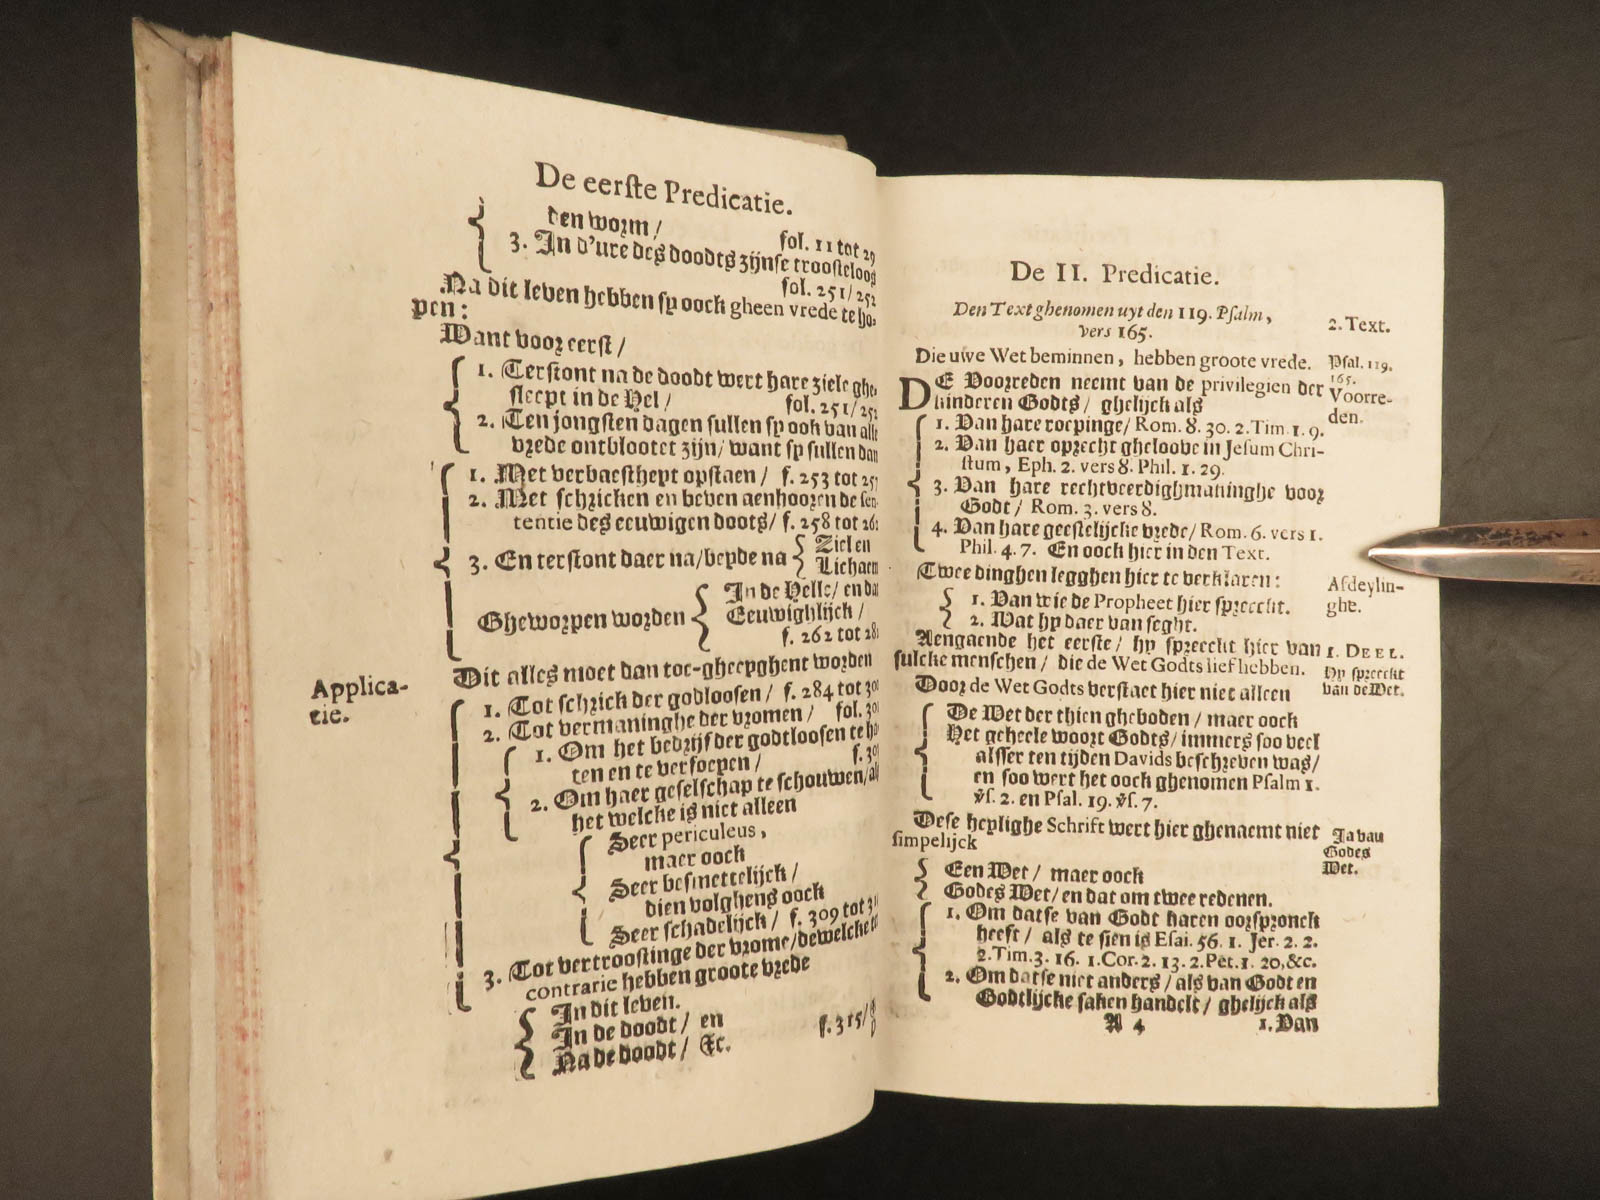 De eerste Predicatie.
den worm /
fol. 11 tot 29
3. In d'ure des doodts zijnse troosteloos
fol. 251/252
Na dit leven hebben sy oock gheen vrede te ho-
pen:
Want voor eerst /
1. Terstont na de doodt wert hare ziele ghe-
sleept in de Hel / fol. 251/252
2. Ten jongsten dagen sullen sy ook van alle
vrede ontblootet zijn / want sy sullen dan
1. Met verbaestheyt opstaen / f. 253 tot 257
2. Met schricken en beven aenhooren de sen-
tentie des eeuwigen doots / f. 258 tot 262
3. En terstont daer na / beyde na
Ziel en
Lichaem
Gheworpen worden
In de Helle / en dat
Eeuwighlijck /
f. 262 tot 28
Dit alles moet dan toe-gheeyghent worden
Applica-
tie.
1. Tot schrick der godloosen / f. 284 tot 30
2. Tot vermaninghe der vromen / fol. 30
1. Om het bedrijf der godtloosen te ha-
ten en te verfoeyen / f. 30
2. Om haer geselschap te schouwen / al
het welcke is niet alleen
Seer periculeus,
maer oock
Seer besmettelijck /
dien volghens oock
Seer schadelijck / f. 309 tot 31
3. Tot vertroostinge der vrome / dewelcke
contrarie hebben groote vrede
In dit leven.
In de doodt / en
Na de doodt / &c. f. 315/
De II. Predicatie.
Den Text ghenomen uyt den 119. Psalm,
vers 165.
2. Text.
Die uwe Wet beminnen, hebben groote vrede.
Psal. 119.
165.
DE Voorreden neemt van de privilegien der
Voorre-
den.
kinderen Godts / ghelijck als
1. Van hare roepinge / Rom. 8. 30. 2. Tim. 1. 9.
2. Van haer oprecht gheloove in Jesum Chri-
stum, Eph. 2. vers 8. Phil. 1. 29.
3. Van hare rechtveerdighmaninghe voor
Godt / Rom. 3. vers 8.
4. Van hare geestelijcke vrede / Rom. 6. vers 1.
Phil. 4. 7. En oock hier in den Text.
Twee dinghen legghen hier te verklaren:
Afdeylin-
ghe.
1. Van wie de Propheet hier spreeckt.
2. Wat hy daer van seght.
Aengaende het eerste / hy spreeckt hier van
1. DEEL.
sulcke menschen / die de Wet Godts lief hebben.
Hy spreeckt
van de Wet.
Door de Wet Godts verstaet hier niet alleen
De Wet der thien gheboden / maer oock
Het geheele woort Godts / immers soo veel
alsser ten tijden Davids beschreven was /
en soo wert het oock ghenomen Psalm 1.
vs. 2. en Psal. 19. vs. 7.
Dese heylighe Schrift wert hier ghenaemt niet
simpelijck
Ja van
Godes
Wet.
Een Wet / maer oock
Godes Wet / en dat om twee redenen.
1. Om datse van Godt haren oorspronck
heeft / als te sien is Esai. 56. 1. Jer. 2. 2.
2. Tim. 3. 16. 1. Cor. 2. 13. 2. Pet. 1. 20, &c.
2. Om datse niet anders / als van Godt en
Godtlijcke saken handelt / ghelijck als
A 4
1. Van